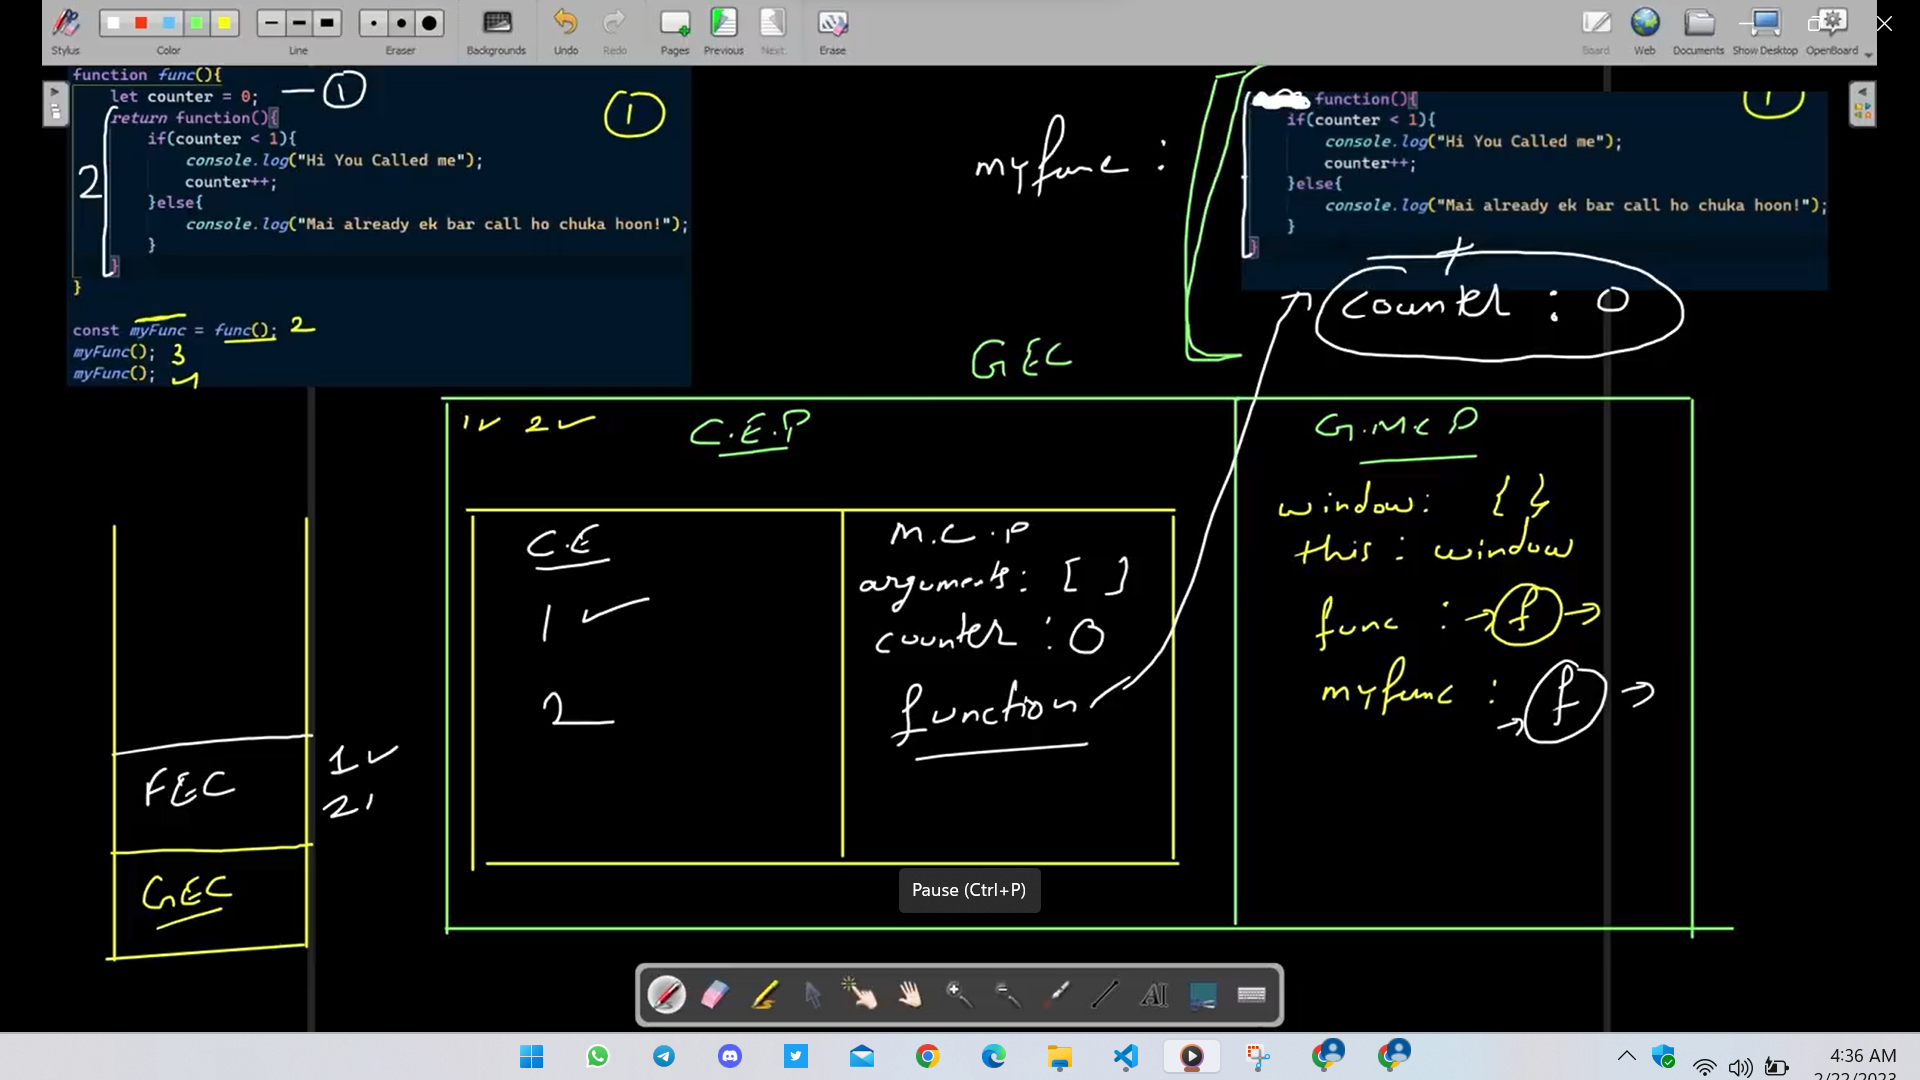 Stylus
Color
Line
Eraser
Backgrounds
Undo
Redo
Pages
Previous
Next
Erase
Board
Web
Documents
Show Desktop
OpenBoard
function func(){
let counter = 0; — 1
return function(){
if(counter < 1){
console.log("Hi You Called me");
counter++;
}else{
console.log("Mai already ek bar call ho chuka hoon!");
}
}
}
1
2
const myFunc = func(); 2
myFunc(); 3
myFunc();
myfunc :
function(){
if(counter < 1){
console.log("Hi You Called me");
counter++;
}else{
console.log("Mai already ek bar call ho chuka hoon!");
}
}
1
+
counter : 0
GEC
1✓ 2✓ C.E.P
G.M.C P
C.E
1 ✓
2
M.C.P
arguments: [ ]
counter : 0
function
window: { }
this : window
func : → f →
myfunc : → f →
FEC
1✓
2
GEC
Pause (Ctrl+P)
AI
4:36 AM
2/22/2023